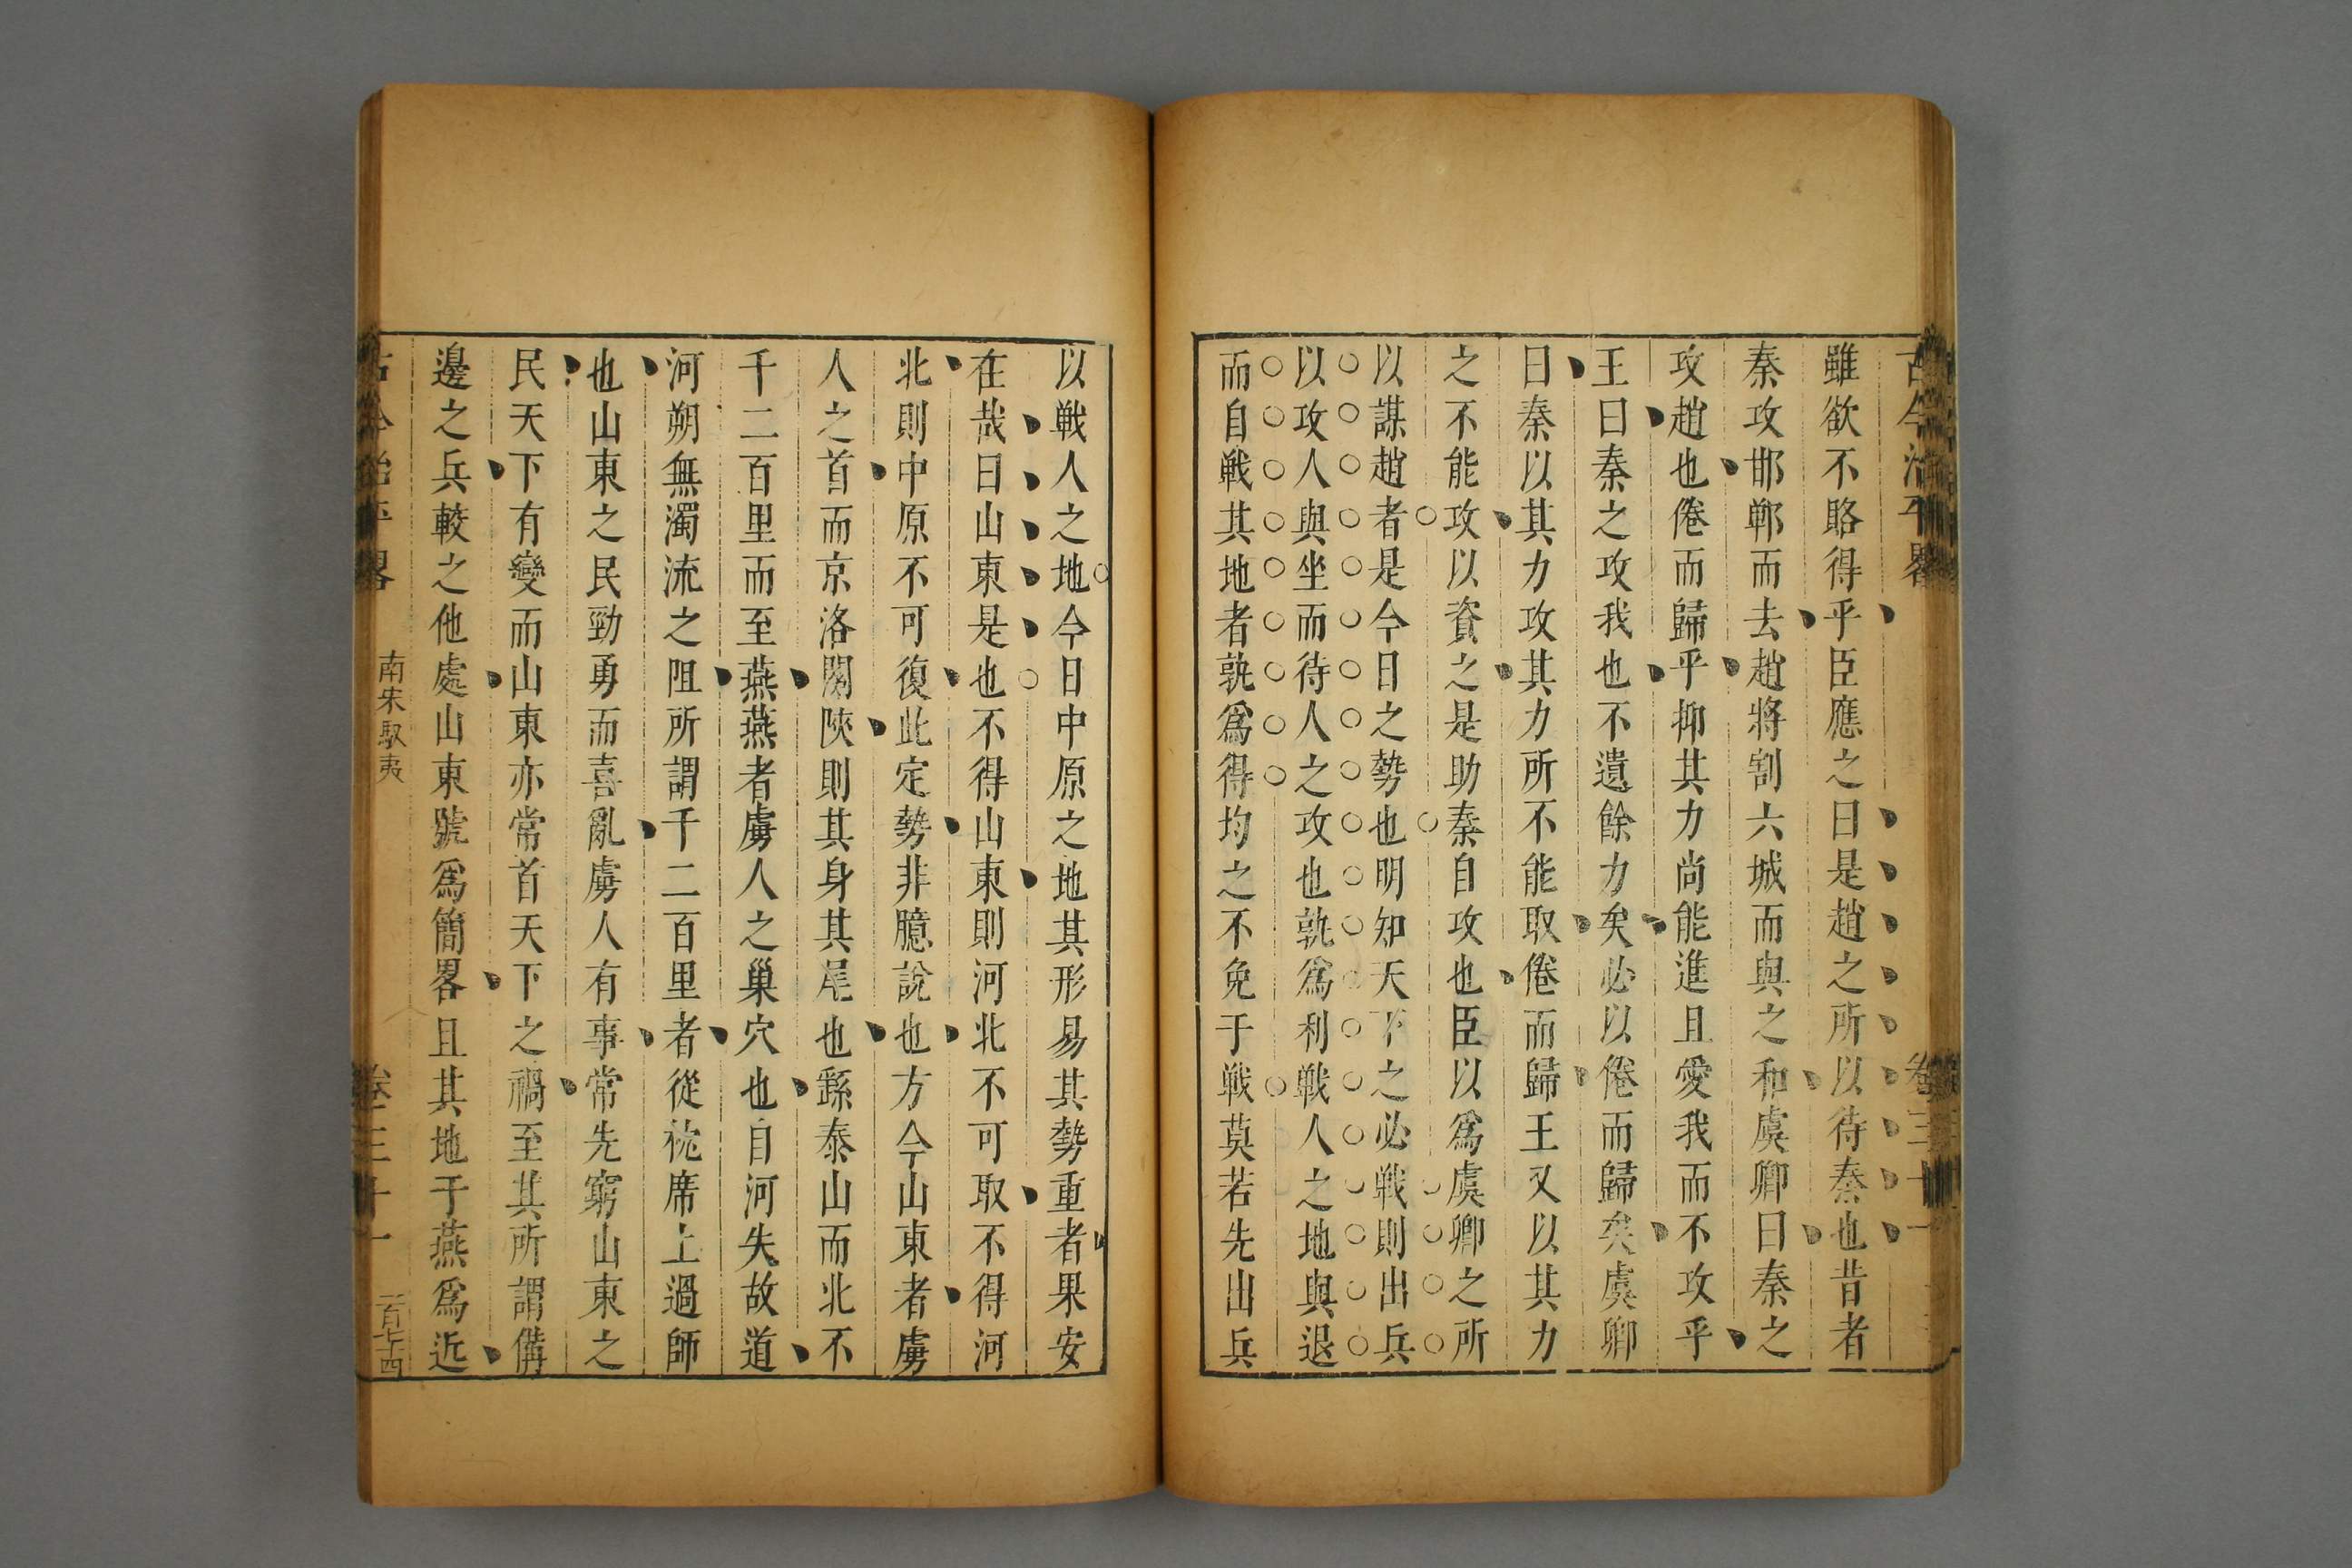 雖欲不賂得乎臣應之曰是趙之所以待秦也昔者
秦攻邯鄲而去趙將割六城而與之和虞卿曰秦之
攻趙也倦而歸乎抑其力尚能進且愛我而不攻乎
王曰秦之攻我也不遺餘力矣必以倦而歸矣虞卿
曰秦以其力攻其力所不能取倦而歸王又以其力
之不能攻以資之是助秦自攻也臣以爲虞卿之所
以謀趙者是今日之勢也明知天下之必戦則出兵
以攻人與坐而待人之攻也孰爲利戦人之地與退
而自戦其地者孰爲得均之不免于戦莫若先出兵
以戦人之地今日中原之地其形易其勢重者果安
在哉曰山東是也不得山東則河北不可取不得河
北則中原不可復此定勢非臆說也方今山東者虜
人之首而京洛關陝則其身其尾也繇泰山而北不
千二百里而至燕燕者虜人之巢穴也自河失故道
河朔無濁流之阻所謂千二百里者從枕席上過師
也山東之民勁勇而喜亂虜人有事常先窮山東之
民天下有變而山東亦常首天下之禍至其所謂備
邊之兵較之他處山東號爲簡畧且其地于燕爲近
古今治平畧
南宋馭夷
卷三十一
一百七十四